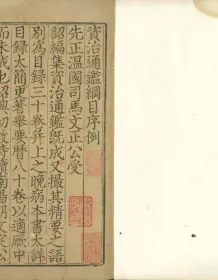 資治通鑑綱目序例
先正溫國司馬文正公受
詔編集資治通鑑既成又撮其精要之語
別爲目錄三十卷并上之晚病本書太詳
目錄太簡更著舉要曆八十卷以適厥中
而未成也紹興初故侍讀南陽胡文定公